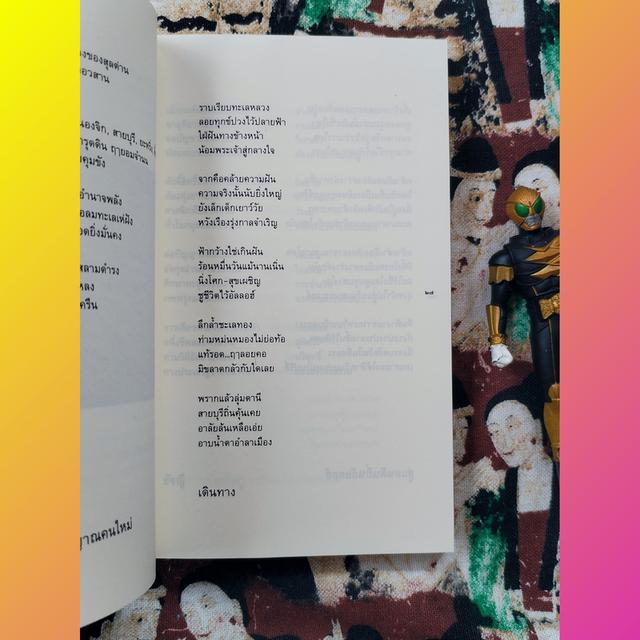 งของสุลต่าน
อวสาน
นองจิก, สายบุรี, ยะหริ่ง,
ารุดดิน ฤๅยอมจำนน
คุมขัง
อำนาจพลัง
ลมทะเลเห่ฝัง
อดยิ่งมั่นคง
หลามดำรง
หลง
ครืน
ญาณคนใหม่
ราบเรียบทะเลหลวง
ลอยทุกข์ปวงไว้ปลายฟ้า
ใฝ่ฝันทางข้างหน้า
น้อมพระเจ้าสู่กลางใจ
จากคือคล้ายความฝัน
ความจริงนั้นนับยิ่งใหญ่
ยังเล็กเด็กเยาว์วัย
หวังเรืองรุ่งกาลจำเริญ
ฟ้ากว้างใช่เกินฝัน
ร้อนหมื่นวันแม้นานเนิ่น
นิ่งโศก-สุขเผชิญ
ชูชีวิตไว้อัลลอฮ์
ลึกล้ำชะเลทอง
ท่ามหม่นหมองไม่ย่อท้อ
แท้รอด...ฤๅลอยคอ
มิขลาดกลัวกับใดเลย
พรากแล้วลุ่มตานี
สายบุรีถิ่นคุ้นเคย
อาลัยล้นเหลือเอ่ย
อาบน้ำตาอำลาเมือง
เดินทาง